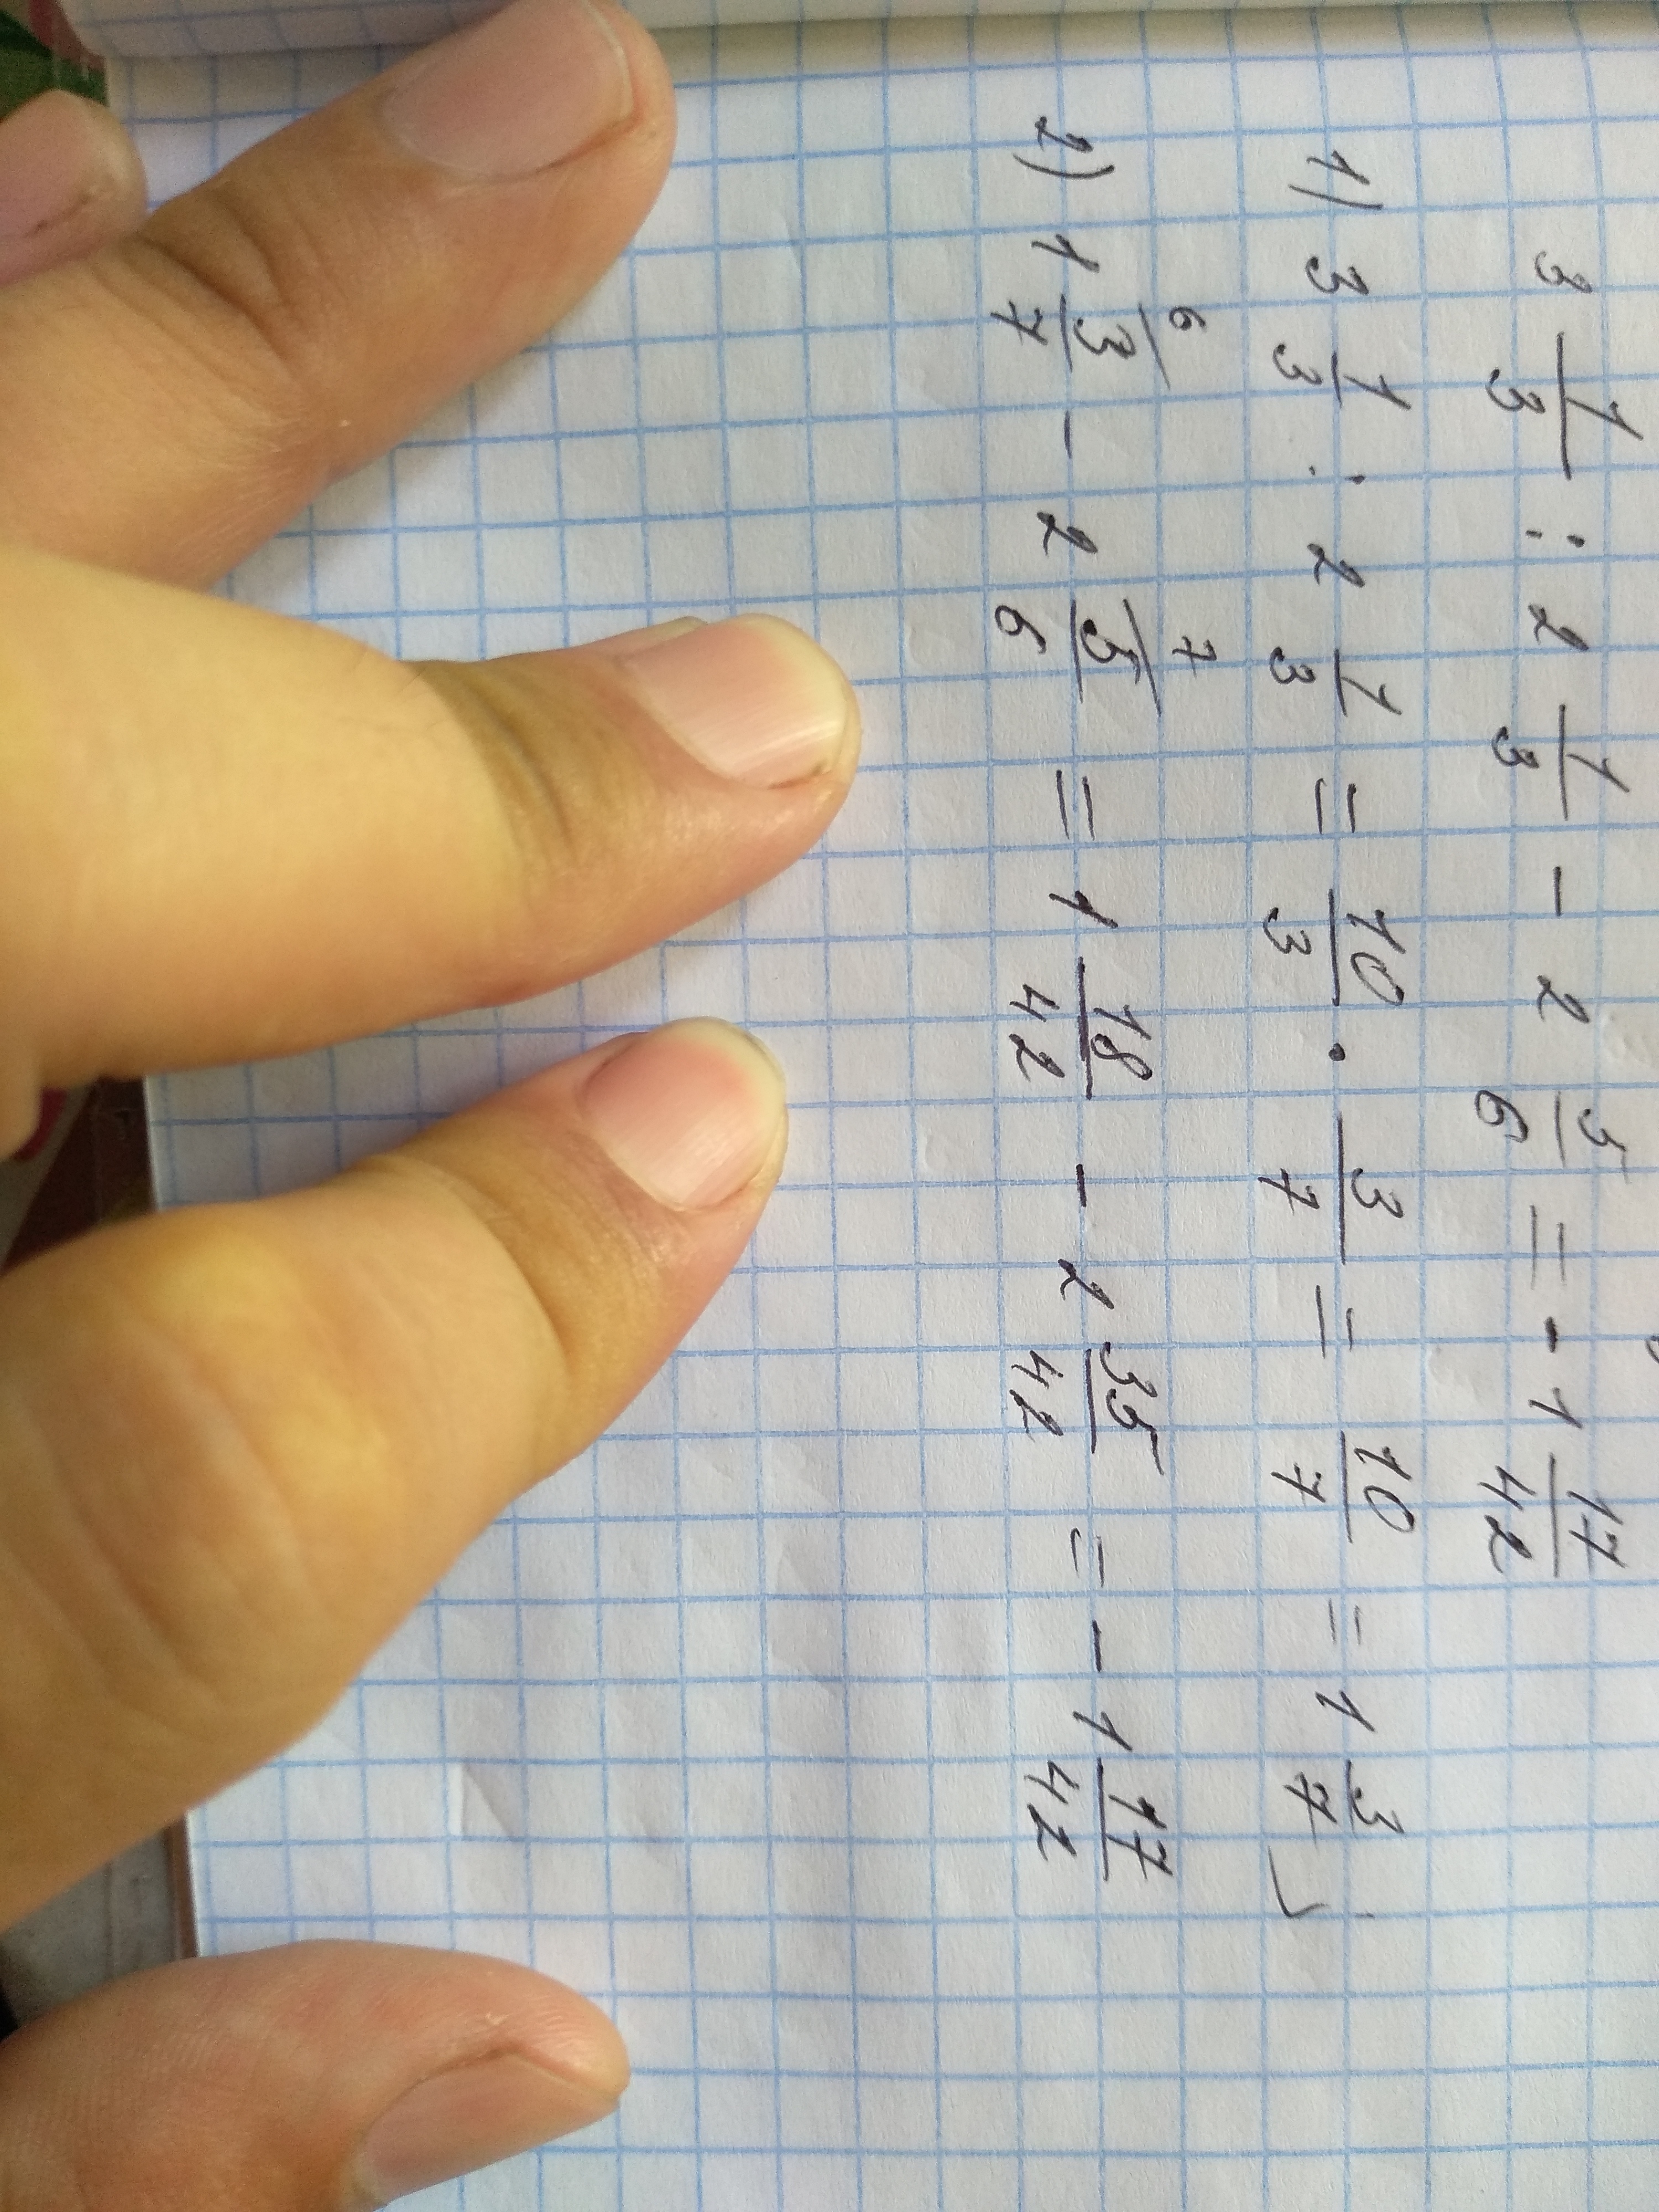 3 1/3 : 2 1/3 - 2 5/6 = - 1 17/42
1) 3 1/3 : 2 1/3 = 10/3 · 3/7 = 10/7 = 1 3/7;
2) 1 3/7 ⁶ - 2 5/6 ⁷ = 1 18/42 - 2 35/42 = - 1 17/42